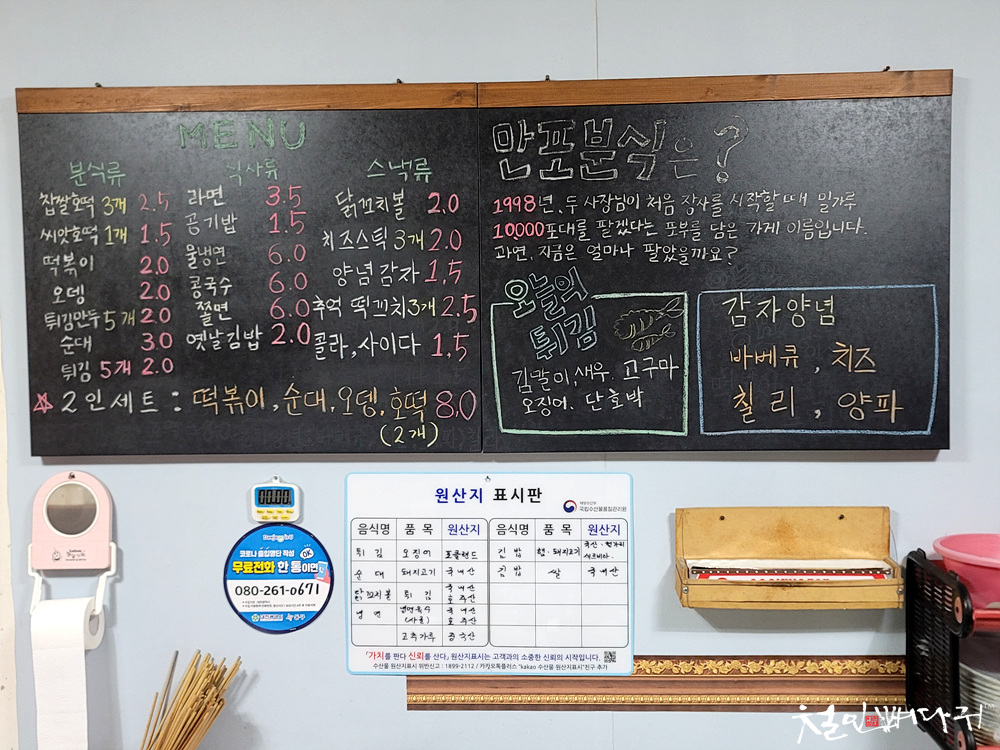 MENU
분식류
찹쌀호떡 3개 2.5
씨앗호떡 1개 1.5
떡볶이 2.0
오뎅 2.0
튀김만두 5개 2.0
순대 3.0
튀김 5개 2.0
식사류
라면 3.5
공기밥 1.5
물냉면 6.0
콩국수 6.0
쫄면 6.0
옛날김밥 2.0
스낵류
닭꼬치볼 2.0
치즈스틱 3개 2.0
양념감자 1.5
추억 떡꼬치 3개 2.5
콜라, 사이다 1.5
☆ 2인세트 : 떡볶이, 순대, 오뎅, 호떡 8.0
(2개)
만포분식은?
1998년, 두 사장님이 처음 장사를 시작할 때 밀가루
10,000포대를 팔겠다는 포부를 담은 가게 이름입니다.
과연, 지금은 얼마나 팔았을까요?
오늘의
튀김
김말이, 새우, 고구마
오징어, 단호박
감자양념
바베큐, 치즈
칠리, 양파
코로나 출입명단 작성 OK
무료전화 한 통이면
080-261-0671
원산지 표시판
국립수산물품질관리원
음식명 품목 원산지 음식명 품목 원산지
튀김 오징어 포클랜드 김밥 햄·돼지고기
순대 돼지고기 국내산 김밥 쌀 국내산
닭꼬치볼 튀김 국내산
호주산
냉면 냉면육수 국내산
호주산
고춧가루 중국산
「가치를 판다 신뢰를 산다」 원산지표시는 고객과의 소중한 신뢰의 시작입니다.
수산물 원산지표시 위반신고 : 1899-2112 / 카카오톡플러스 "kakao 수산물 원산지표시"친구 추가
철인뼈다귀